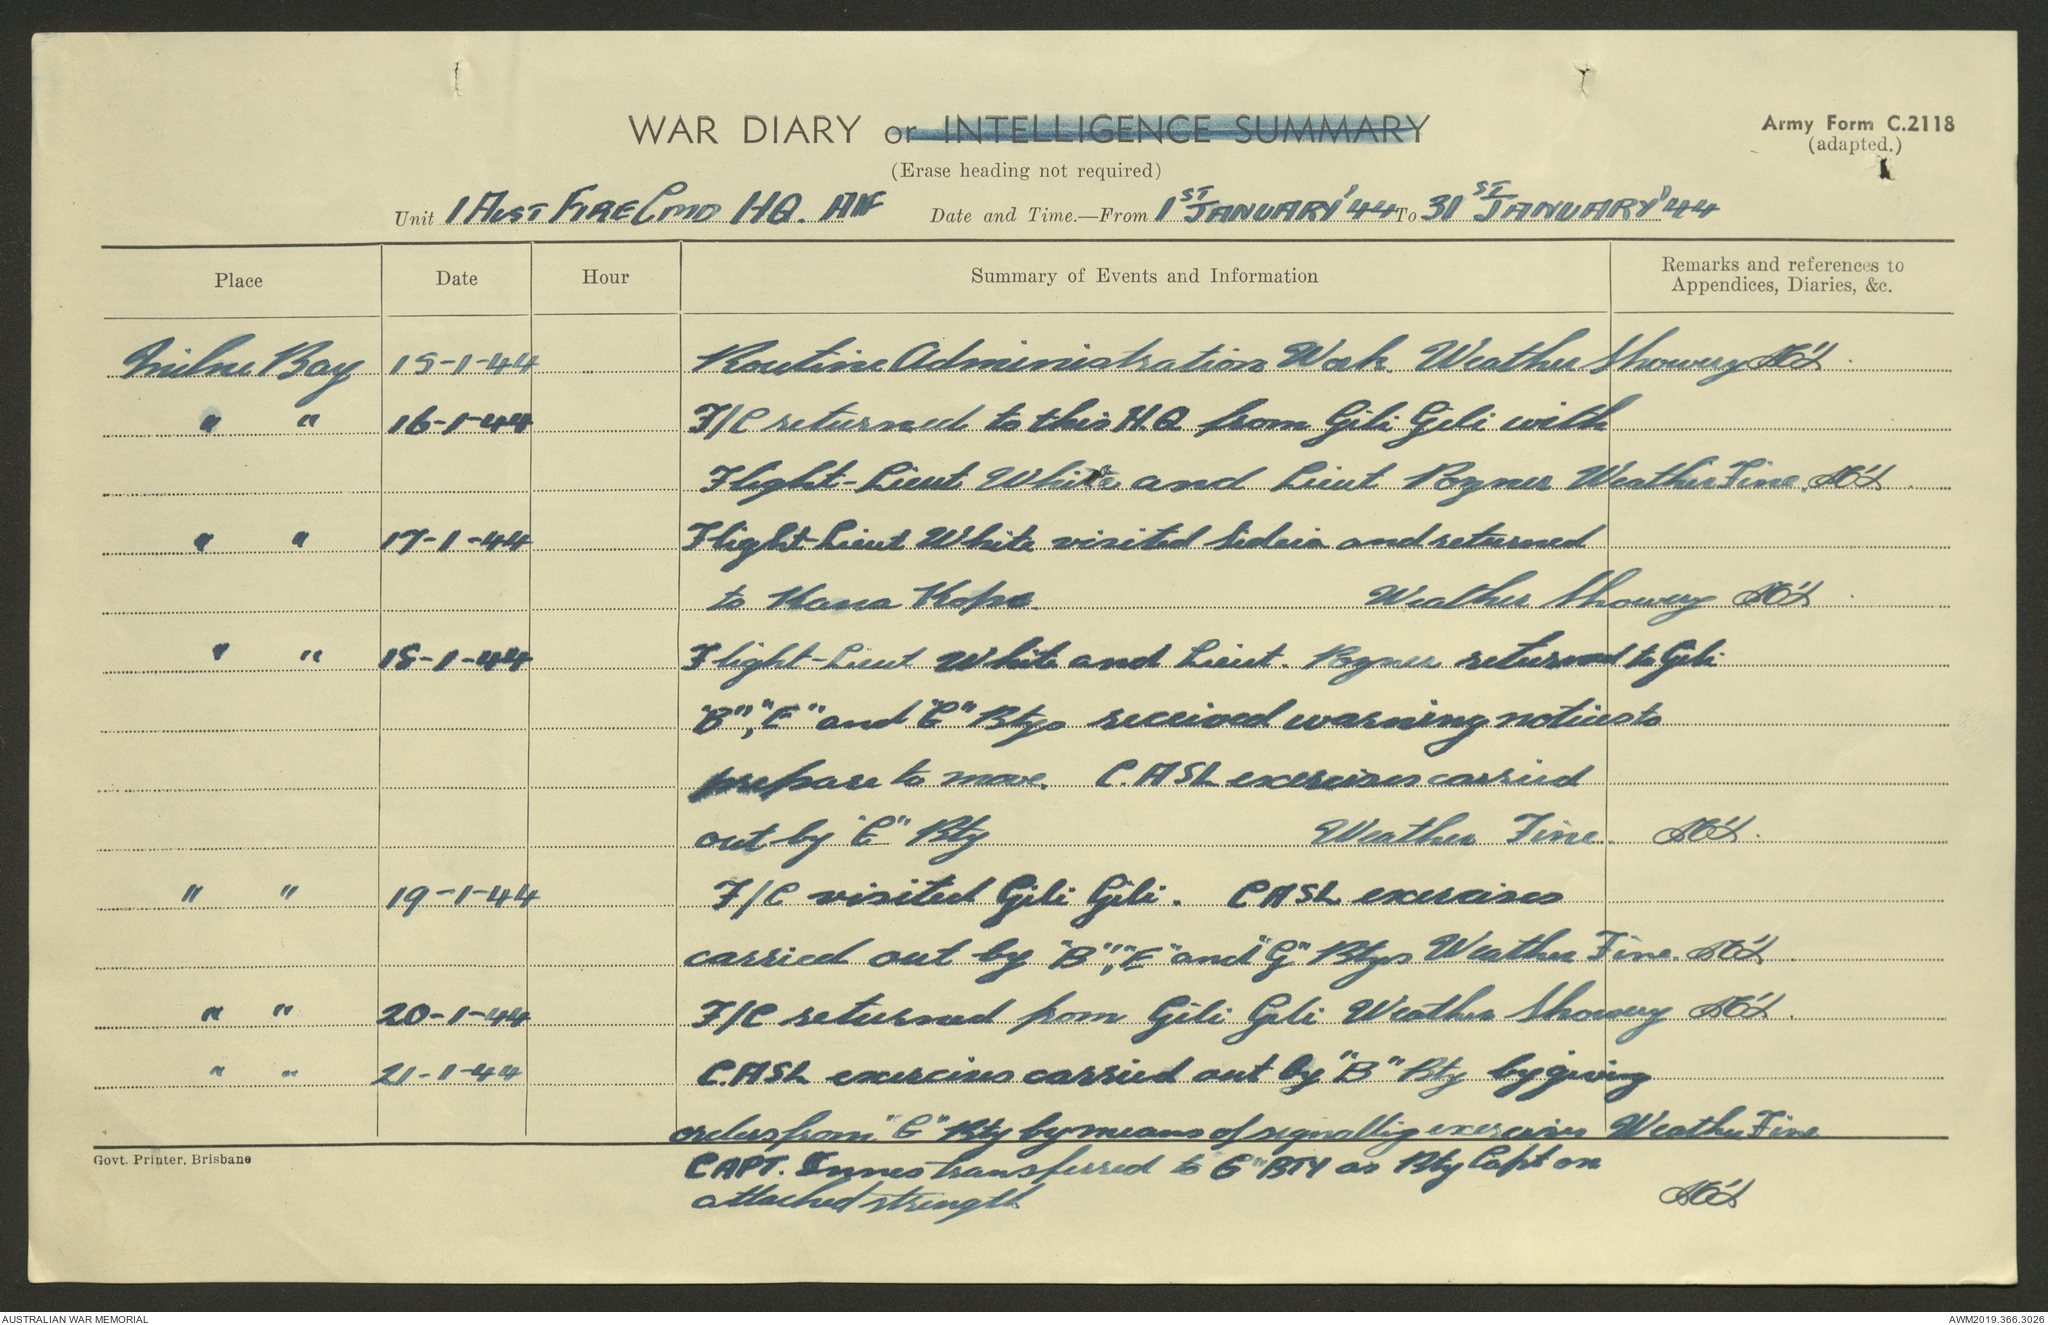 WAR DIARY or INTELLIGENCE SUMMARY
Army Form C.2118
(adapted.)
(Erase heading not required)
Unit 1 Aust Fire Cmd HQ. AIF Date and Time.—From 1ST JANUARY '44 To 31ST JANUARY '44
Place Date Hour Summary of Events and Information Remarks and references to Appendices, Diaries, &c.
Milne Bay 15-1-44 Routine Administration Work. Weather Showery
" " 16-1-44 F/C returned to this H.Q from Gili Gili with
Flight-Lieut White and Lieut Weather Fine.
" " 17-1-44 Flight-Lieut White visited Sideia and returned
to Kana Kopa Weather Showery
" " 18-1-44 Flight-Lieut White and Lieut. returned to Gili
"B", "E" and "G" Btys received warning notices to
prepare to move. C.ASL exercises carried
out by "G" Bty Weather Fine.
" " 19-1-44 F/C visited Gili Gili. CASL exercises
carried out by "B", "E" and "G" Btys Weather Fine.
" " 20-1-44 F/C returned from Gili Gili Weather Showery
" " 21-1-44 C.ASL exercises carried out by "B" Bty by giving
orders from "G" Bty by means of signallig exercises Weather Fine
Govt. Printer, Brisbane
CAPT. Innes transferred to "G" BTY as Bty Capt on
attached strength
AUSTRALIAN WAR MEMORIAL
AWM2019.366.3026